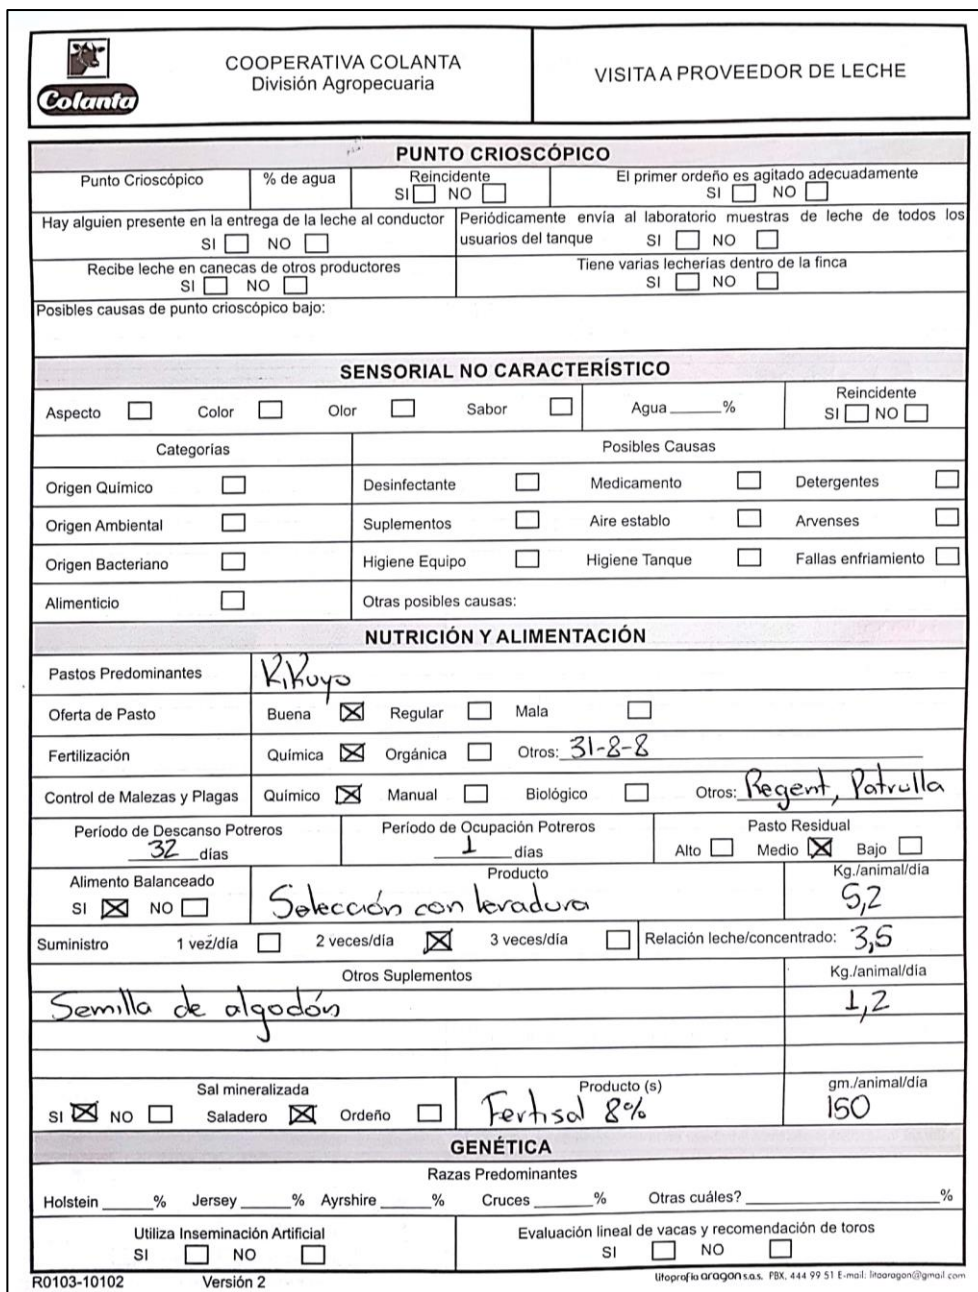 Colanta
COOPERATIVA COLANTA
División Agropecuaria
VISITA A PROVEEDOR DE LECHE
PUNTO CRIOSCÓPICO
Punto Crioscópico % de agua Reincidente El primer ordeño es agitado adecuadamente
SI NO SI NO
Hay alguien presente en la entrega de la leche al conductor Periódicamente envía al laboratorio muestras de leche de todos los
SI NO usuarios del tanque SI NO
Recibe leche en canecas de otros productores Tiene varias lecherías dentro de la finca
SI NO SI NO
Posibles causas de punto crioscópico bajo:
SENSORIAL NO CARACTERÍSTICO
Reincidente
Aspecto Color Olor Sabor Agua ____% SI NO
Categorías Posibles Causas
Origen Químico Desinfectante Medicamento Detergentes
Origen Ambiental Suplementos Aire establo Arvenses
Origen Bacteriano Higiene Equipo Higiene Tanque Fallas enfriamiento
Alimenticio Otras posibles causas:
NUTRICIÓN Y ALIMENTACIÓN
Pastos Predominantes Kikuyo
Oferta de Pasto Buena X Regular Mala
Fertilización Química X Orgánica Otros: 31-8-8
Control de Malezas y Plagas Químico X Manual Biológico Otros: Regent, Patrulla
Período de Descanso Potreros Período de Ocupación Potreros Pasto Residual
32 días 1 días Alto Medio X Bajo
Alimento Balanceado Producto Kg./animal/día
SI X NO Selección con levadura 5,2
Suministro 1 vez/día 2 veces/día X 3 veces/día Relación leche/concentrado: 3,5
Otros Suplementos Kg./animal/día
Semilla de algodón 1,2
Sal mineralizada Producto (s) gm./animal/día
SI X NO Saladero X Ordeño Fertisal 8% 150
GENÉTICA
Razas Predominantes
Holstein ____% Jersey ____% Ayrshire ____% Cruces ____% Otras cuáles? ____%
Utiliza Inseminación Artificial Evaluación lineal de vacas y recomendación de toros
SI NO SI NO
R0103-10102 Versión 2 litografia aragon s.a.s. PBX. 444 99 51 E-mail: litoaragon@gmail.com